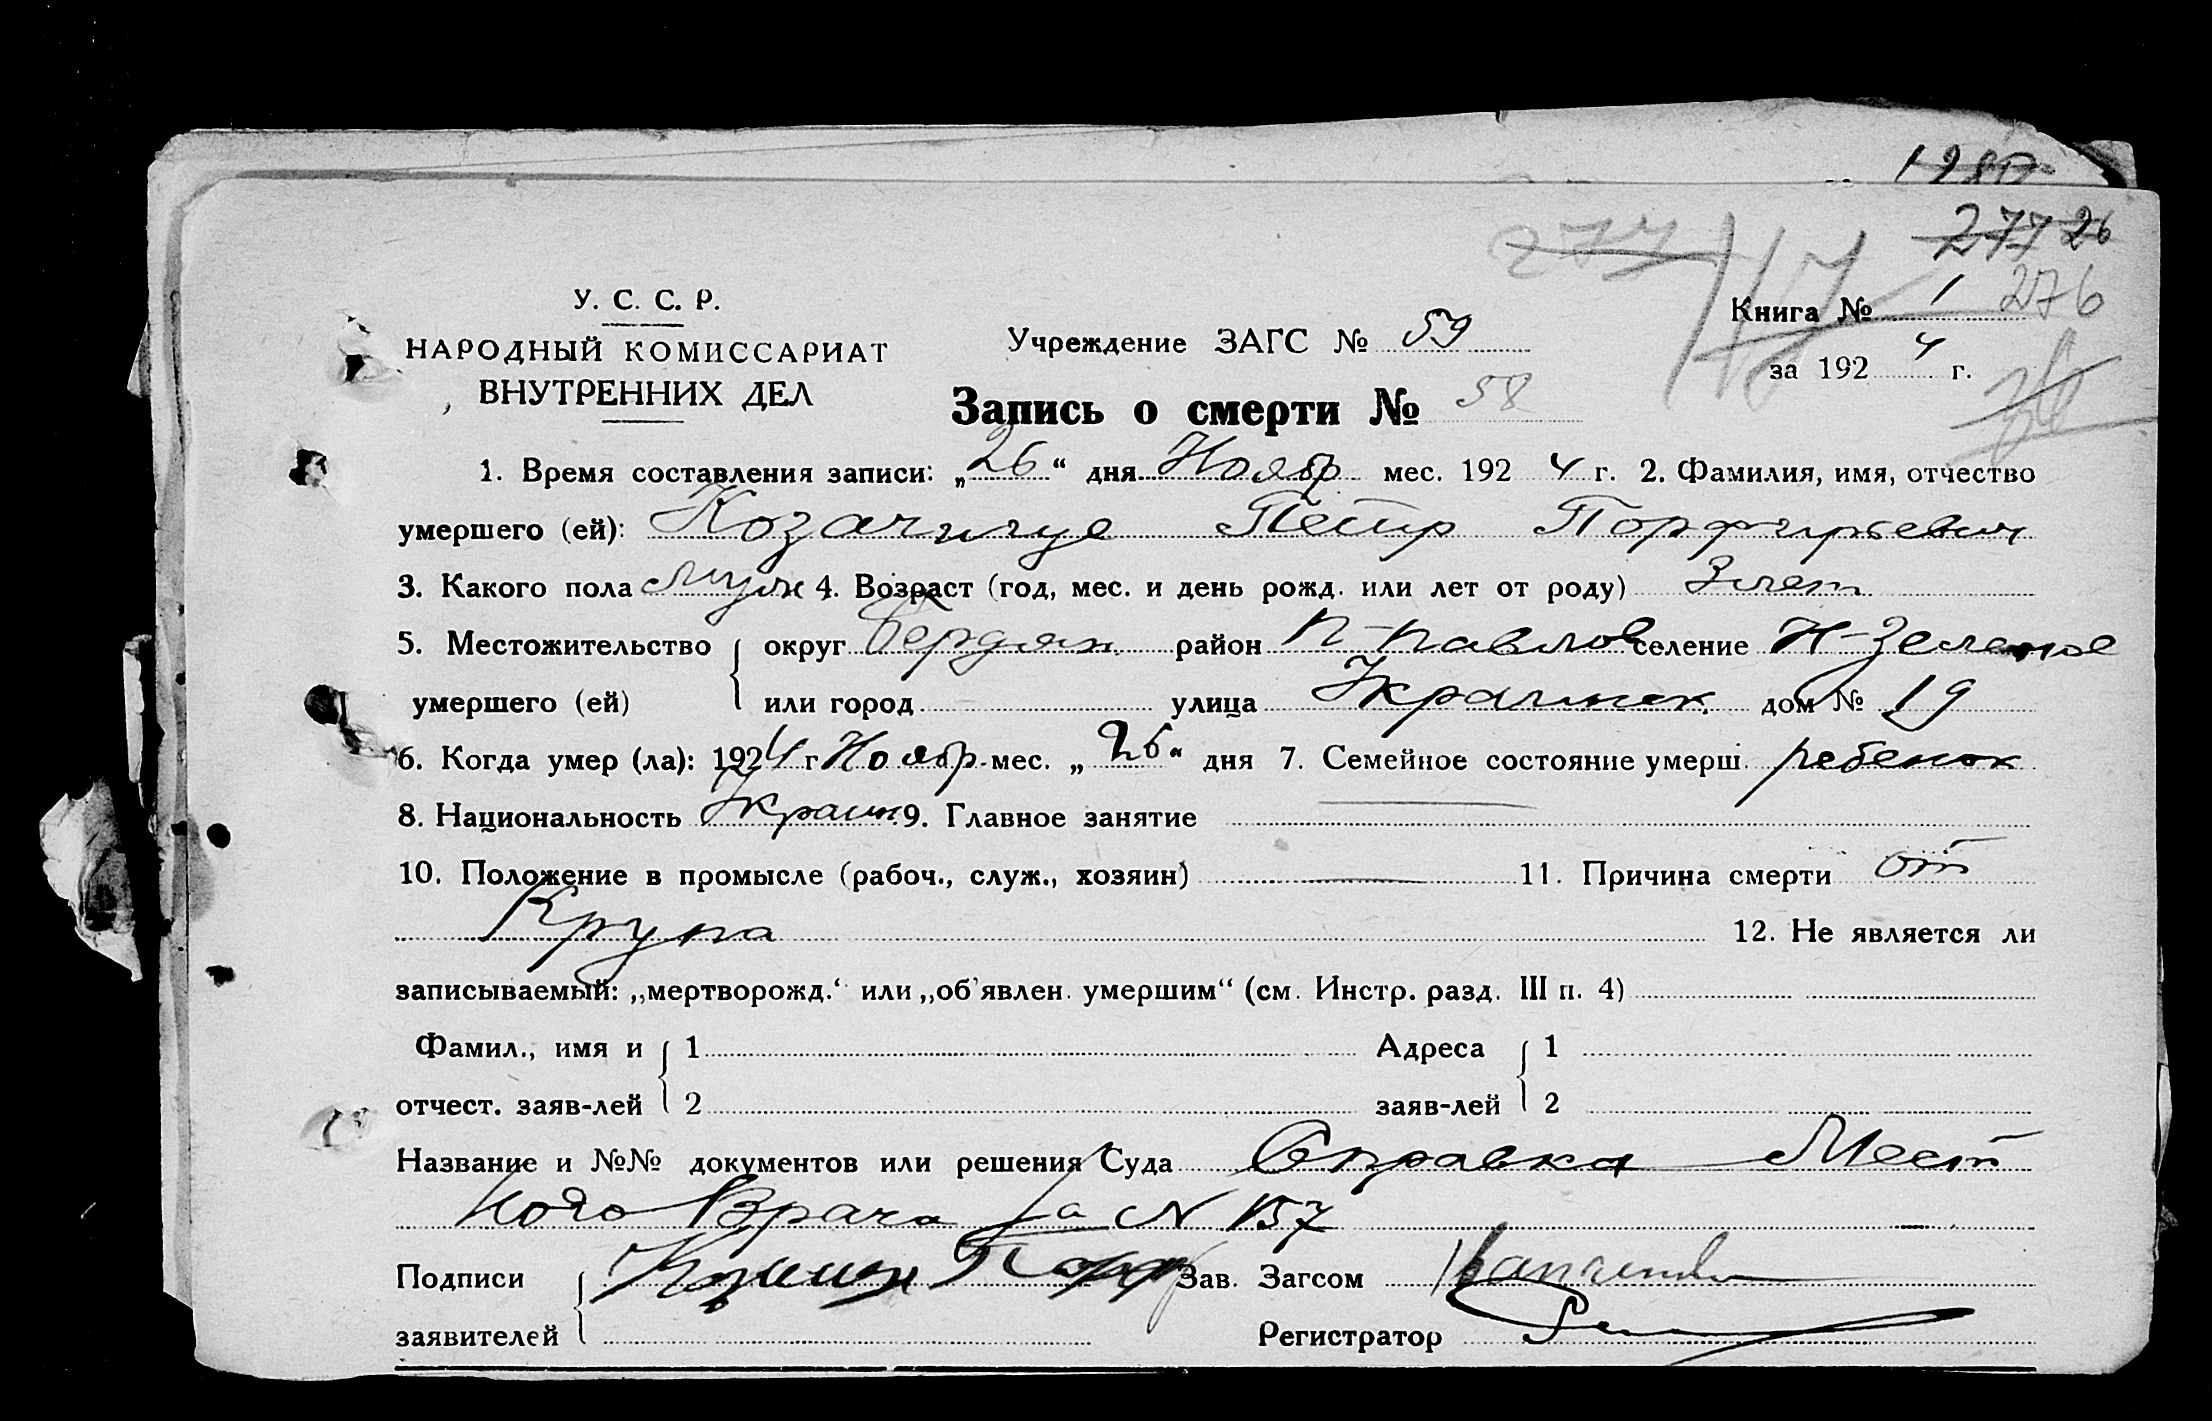 1280
277 277 26
У. С. С. Р.
Книга № 1 276
НАРОДНЫЙ КОМИССАРИАТ Учреждение ЗАГС № 59
за 192 4 г.
ВНУТРЕННИХ ДЕЛ
Запись о смерти № 58
1. Время составления записи: „26“ дня Ноябр мес. 192 4 г. 2. Фамилия, имя, отчество
умершего (ей): Петр Порфирьевич
3. Какого пола Муж 4. Возраст (год, мес. и день рожд. или лет от роду) 3 лет
5. Местожительство округ Бердян район П-Павлов селение Н-Зеленое
умершего (ей) или город улица Украинск. дом № 19
6. Когда умер (ла): 1924 г Ноябр. мес. „26“ дня 7. Семейное состояние умерш. ребенок
8. Национальность Украин 9. Главное занятие —
10. Положение в промысле (рабоч., служ., хозяин) — 11. Причина смерти от
Крупа 12. Не является ли
записываемый: „мертворожд.“ или „об'явлен. умершим“ (см. Инстр. разд. III п. 4)
Фамил., имя и 1 Адреса 1
отчест. заяв-лей 2 заяв-лей 2
Название и №№ документов или решения Суда Справка Мест
ного Врача за N 157
Подписи Зав. Загсом
заявителей Регистратор